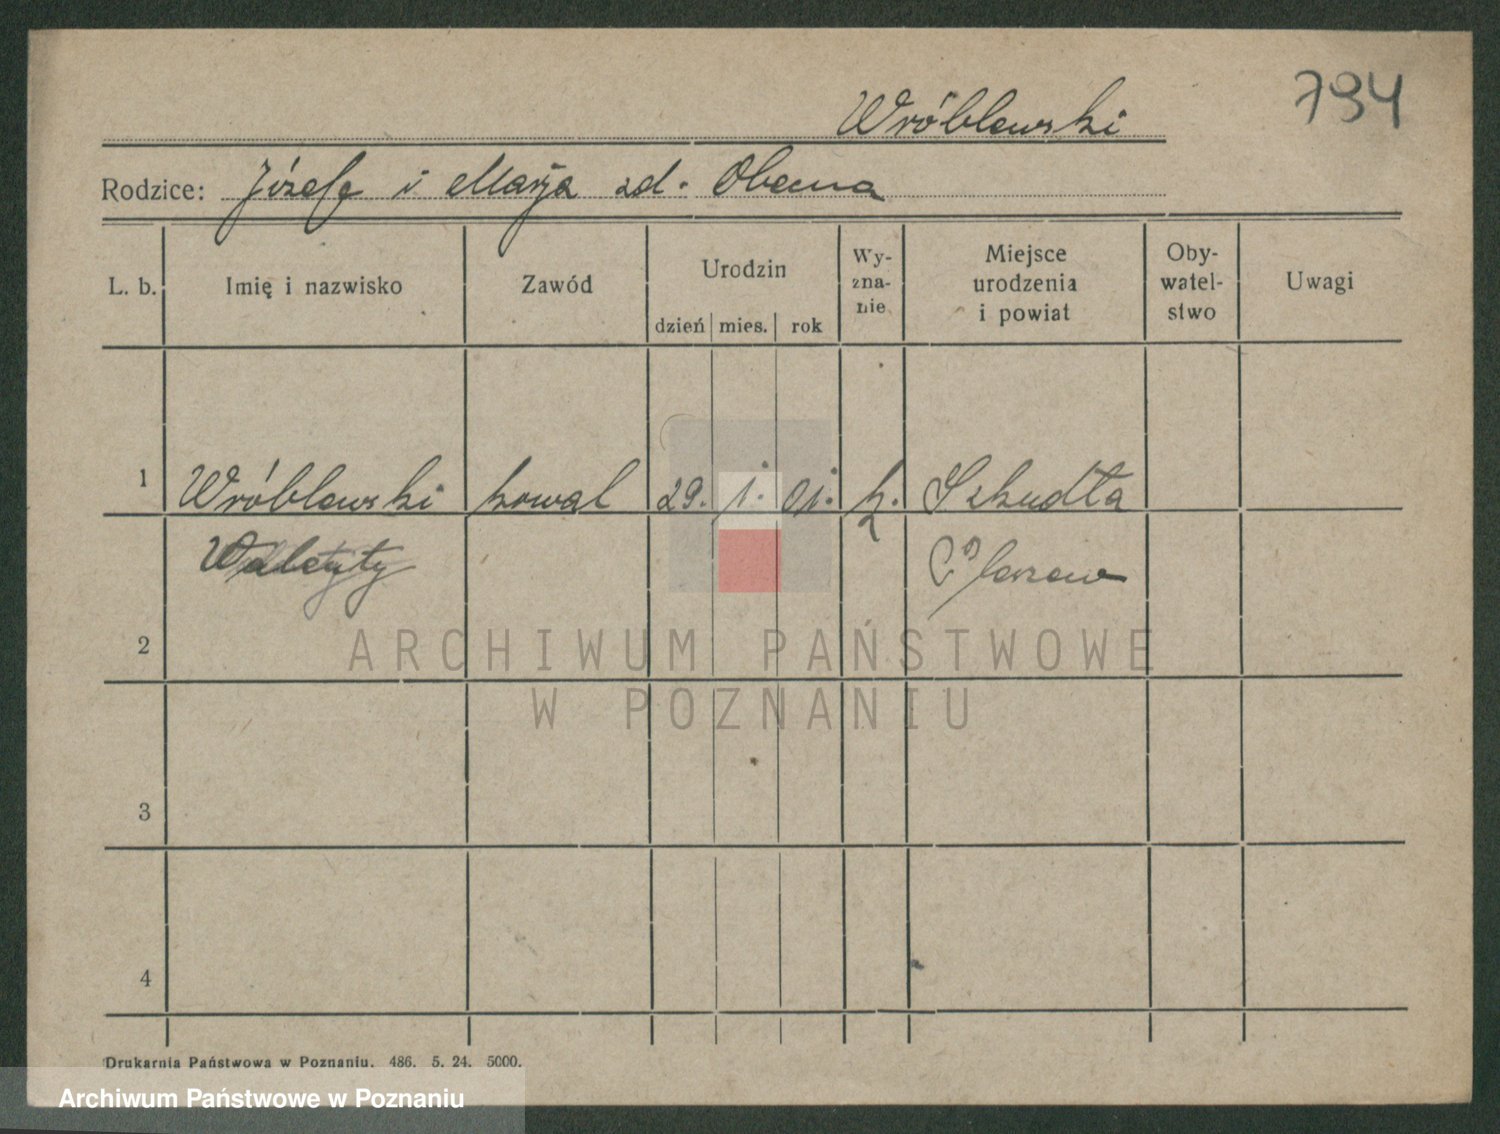 794
Wróblewski
Rodzice: Józefa i Marja zd. Obecna
L. b.
Imię i nazwisko
Zawód
Urodzin
dzień mies. rok
Wy-
zna-
nie
Miejsce
urodzenia
i powiat
Oby-
watel-
stwo
Uwagi
1 Wróblewski kowal 29. 1. 01. k. Szkudła
Walenty
2
3
4
Drukarnia Państwowa w Poznaniu. 486. 5. 24. 5000.
ARCHIWUM PAŃSTWOWE
W POZNANIU
Archiwum Państwowe w Poznaniu